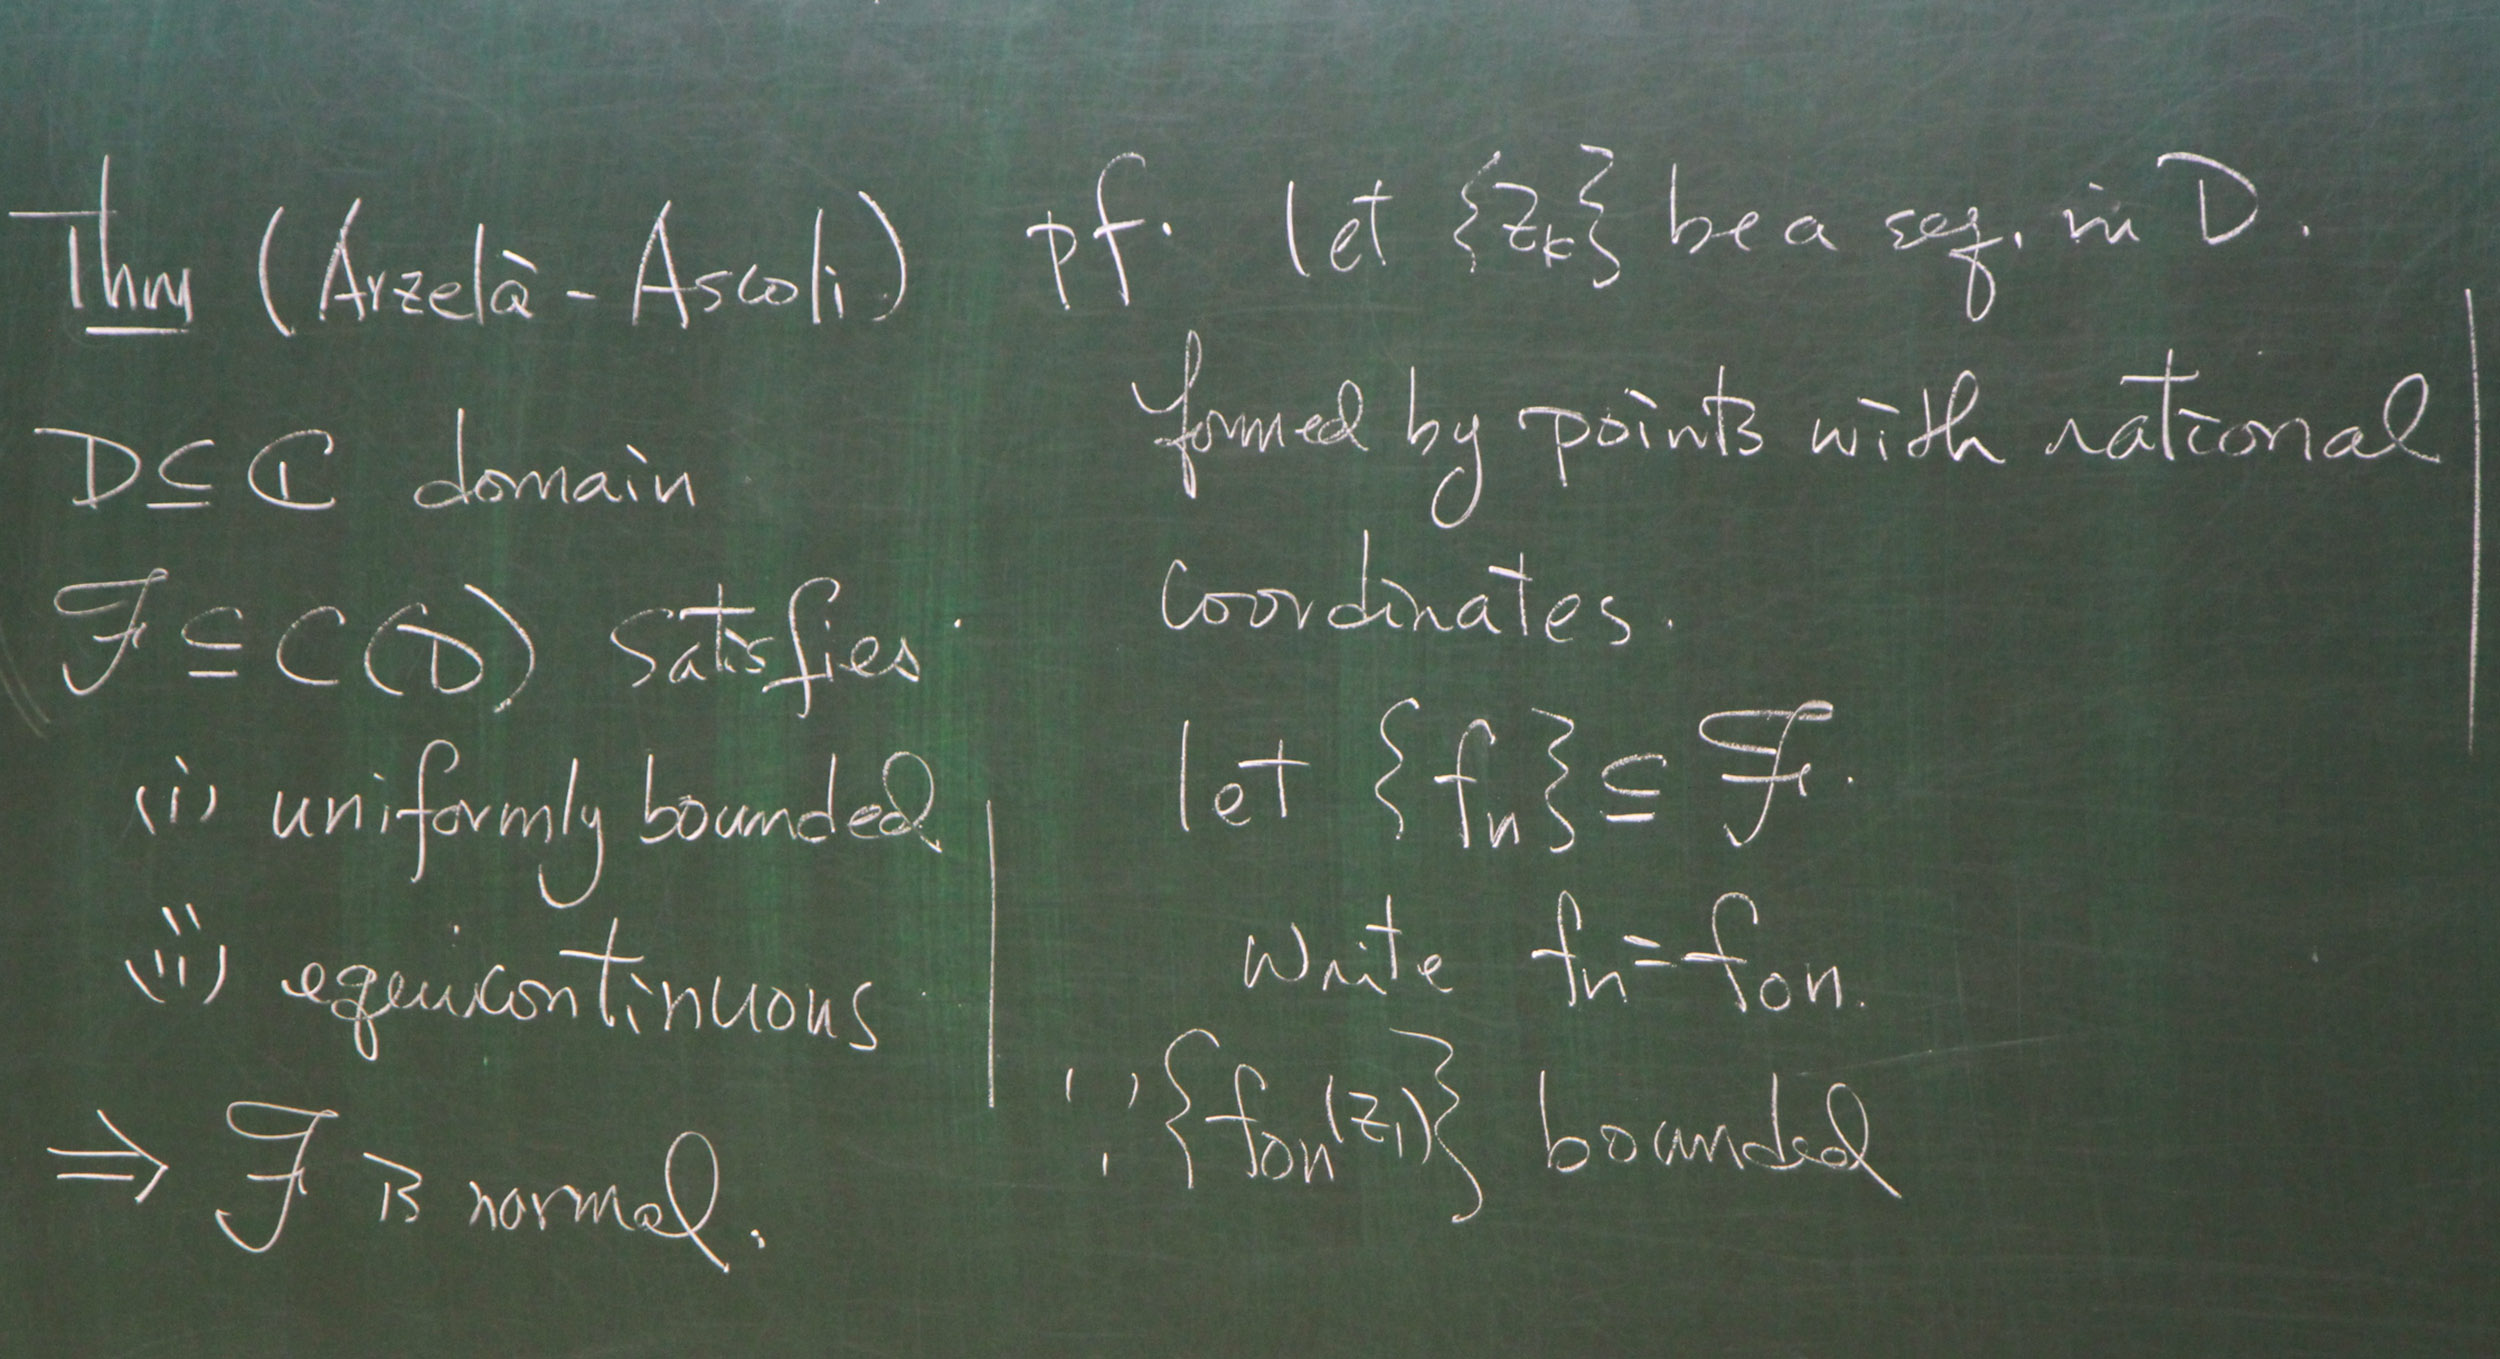 Thm (Arzelà-Ascoli)
D ⊆ ℂ domain
ℱ ⊆ C(D) satisfies
(i) uniformly bounded
(ii) equicontinuous
⇒ ℱ is normal.
pf. let {z_k} be a seq. in D.
formed by points with rational
coordinates.
let {f_n} ⊆ ℱ.
Write f_n = f_{0n}.
∵ {f_{0n}(z_1)} bounded